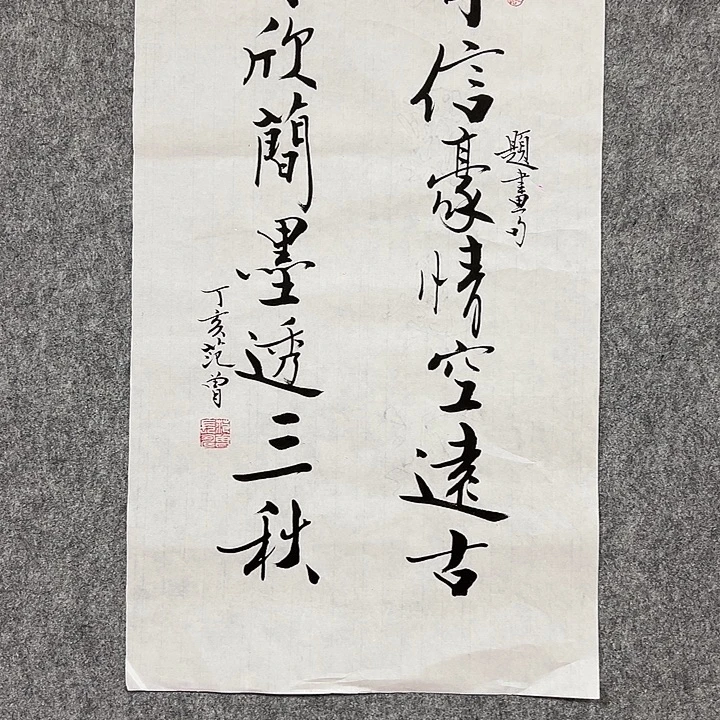 信豪情空遠古
題畫句
欣蘭墨透三秋
丁亥范曾